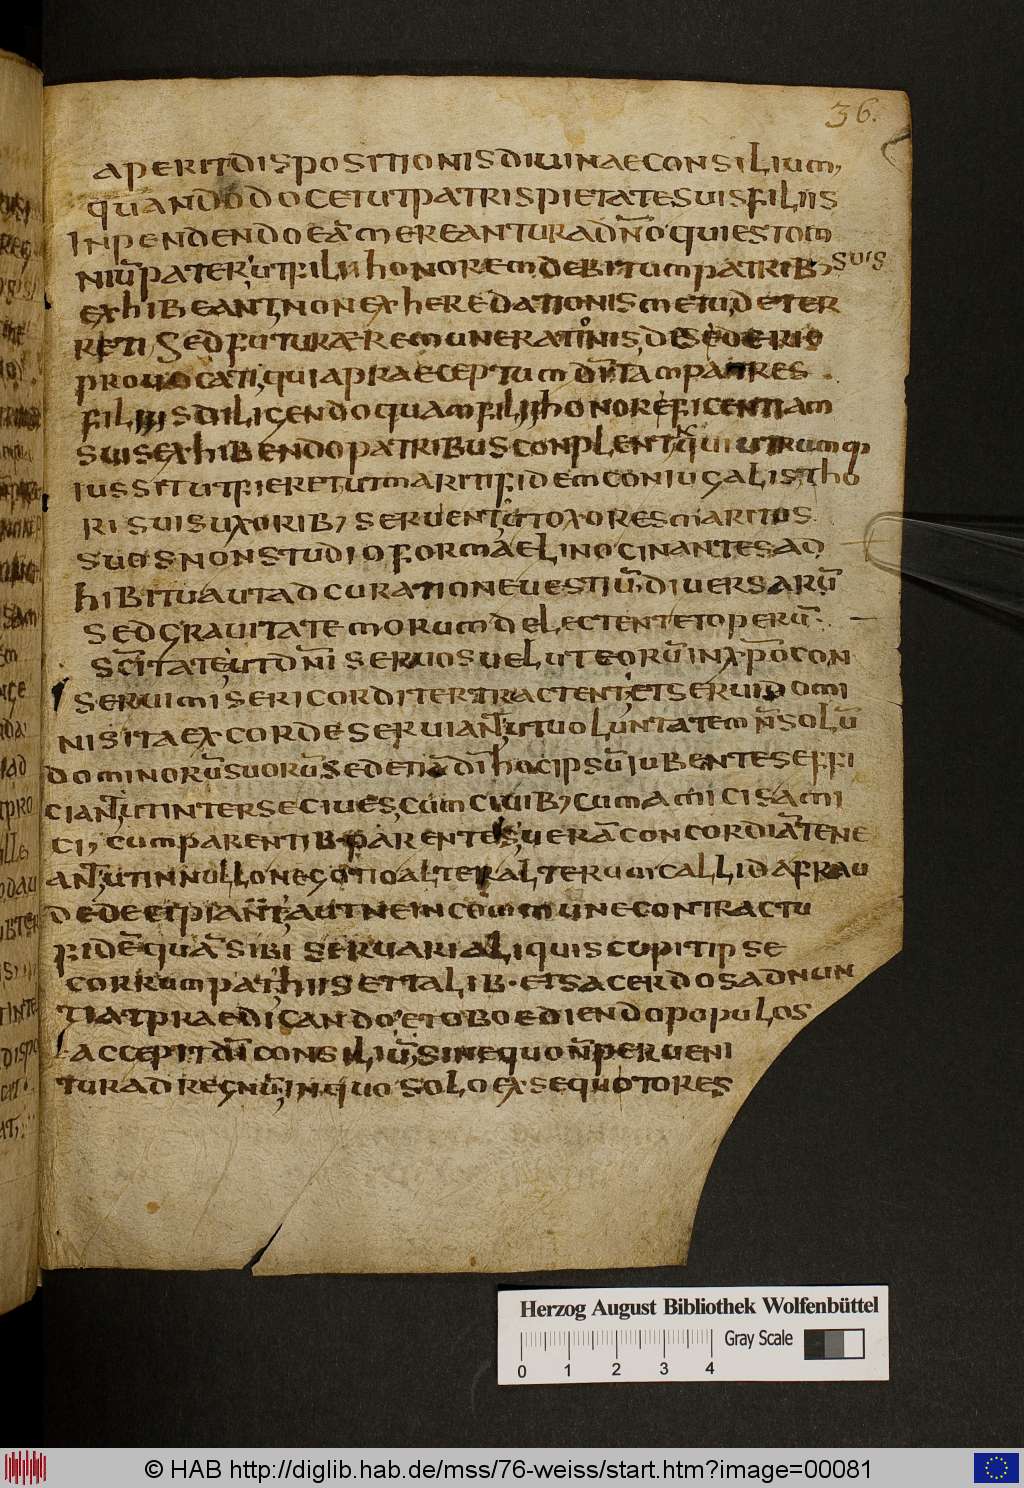 36.
aperitdispositionisdiuinaeconsilium,
quandodocetutpatrispietatesuisfiliis
Inpendendoea mereanturadno quiestom
niūpater utfilii honoremdebitumpatrib; suis
exhibeant,nonexheredationismetu,deter
reti, Sedfuturæremunerationis,
prouocati,quiapraeceptum
filiisdiligendoquamfiliihonor
suisexhibendopatribusconplent,quiutrumq
iussitutfieretutmaritifidemconiugalis,tho
ri suisuxorib; seruent,utoxoresmaritos
suosnonstudioformaelinocinantesad
hibituautadcurationeuestiū.diuersarū
sedgrauitatemorumdelectentetoperū.
scitate,utdni seruosuelutteorūinx̄pōcon
seruimisericorditertractent,etseruidomi
nisitaexcordeseruiant,utuoluntatemn̄solū
dominorūsuorūsedetiādīhocipsūiubenteseffi
ciant,utintersecíues,cumciuib;cumamicisami
ci, cumparentib.parentes,ueraconcordiatene
ant,utinnullonegotioalteralterumcallidafrau
dedecipiant,autneincommunecontractu
fidē,quāsibi seruarialiquiscupitipse
corrumpat,hiisettalib.etsacerdosadnun
tiatpraedicando etoboediendopopulos
accepitdīconsiliū,sinequon̄perueni
turadregnū,inquo soloexsequotores
Herzog August Bibliothek Wolfenbüttel
Gray Scale
0 1 2 3 4
© HAB http://diglib.hab.de/mss/76-weiss/start.htm?image=00081